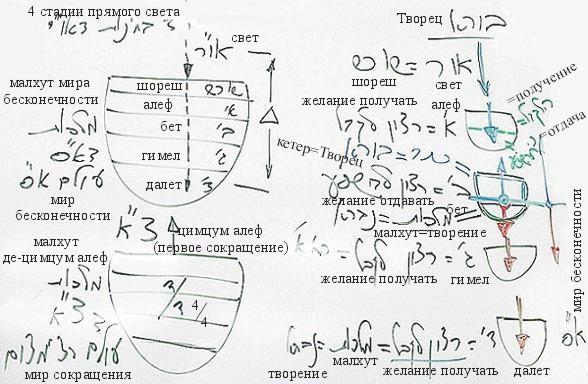 4 стадии прямого света
ד' בחינות דאו"י
свет
אור
малхут мира
бесконечности
מלכות
דא"ס
עולם א"ס
мир
бесконечности
шореш שורש
алеф א'
бет ב'
гимел ג'
далет ד'
צ"א
цимцум алеф
(первое сокращение)
малхут
де-цимцум алеф
מלכות
דצ"א
мир сокращения
4/4
Творец
בורא
אור = שורש
шореш свет
желание получать алеф
א' = רצון לקבל
=получение
=отдача
кетер=Творец
כתר = בורא
ב' = רצון להשפיע
желание отдавать бет
מלכות = נברא
малхут=творение
ג' = רצון לקבל
желание получать гимел
мир бесконечности
א"ס
ד' = רצון לקבל = מלכות = נברא
творение малхут желание получать далет